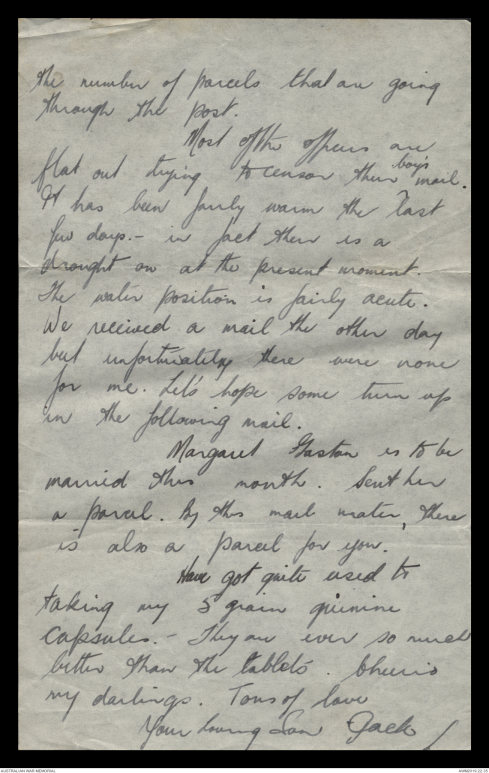 the number of parcels that are going
through the post.
Most of the officers are
flat out trying to censor their boy's mail.
It has been fairly warm the last
few days. - in fact there is a
drought on at the present moment.
The water position is fairly acute.
We received a mail the other day
but unfortunately there were none
for me. Let's hope some turn up
in the following mail.
Margaret Gaston is to be
married this month. Sent her
a parcel. By this mail mater, there
is also a parcel for you.
Have got quite used to
taking my 5 grain quinine
capsules. - They are ever so much
better than the tablets. Cheerio
my darlings. Tons of love
Your loving Son Jack
AUSTRALIAN WAR MEMORIAL